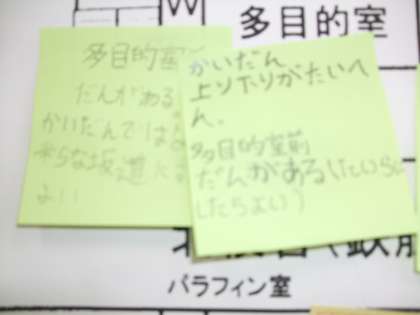 W
多目的室
多目的室
だんがある
かいだんではな
平らな坂道だと
よい
かいだん
上り下りがたいへ
ん。
多目的室前
だんがある(たいらに
したらよい)
パラフィン室